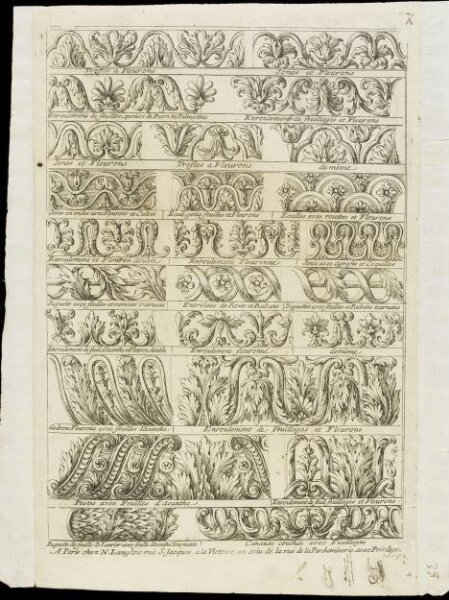 A
Trefles à Fleurons
Jones et Fleurons
Enroulement de feuilles, garnies de et Palmettes
Enroulement de feuillages et Fleurons
Jones et Fleurons
Trefles à Fleurons
de même
Jones en ondes avec Fleurons et Culots
feuilles et Fleurons
avec rosettes et Fleurons
Enroulement et Fleuron double
Enroulement Fleuronné
Jones avec Agrafes et Coquilles
Baguette avec feuilles et ornemens tournans
Entrelats de Roses et Rubans
Baguettes avec feuilles et Rubans tournans
Enroulement de feuil. d'acanthe et Fleuron double
Enroulement fleuronné
de même
Godrons Fleuronis avec feuilles d'Acanthe
Enroulement de Feuillages et Fleurons
Postes avec Feuilles d'Acanthe
Enroulement de feuillages et Fleurons
Baguette de feuille de Laurier avec feuille d'Acanthe tournant
Canaux couchés avec Feuillages
A Paris chez N. Langlois rue S. Jacques a la Victoire, au coin de la rue de la Parcheminerie, avec Privilege.